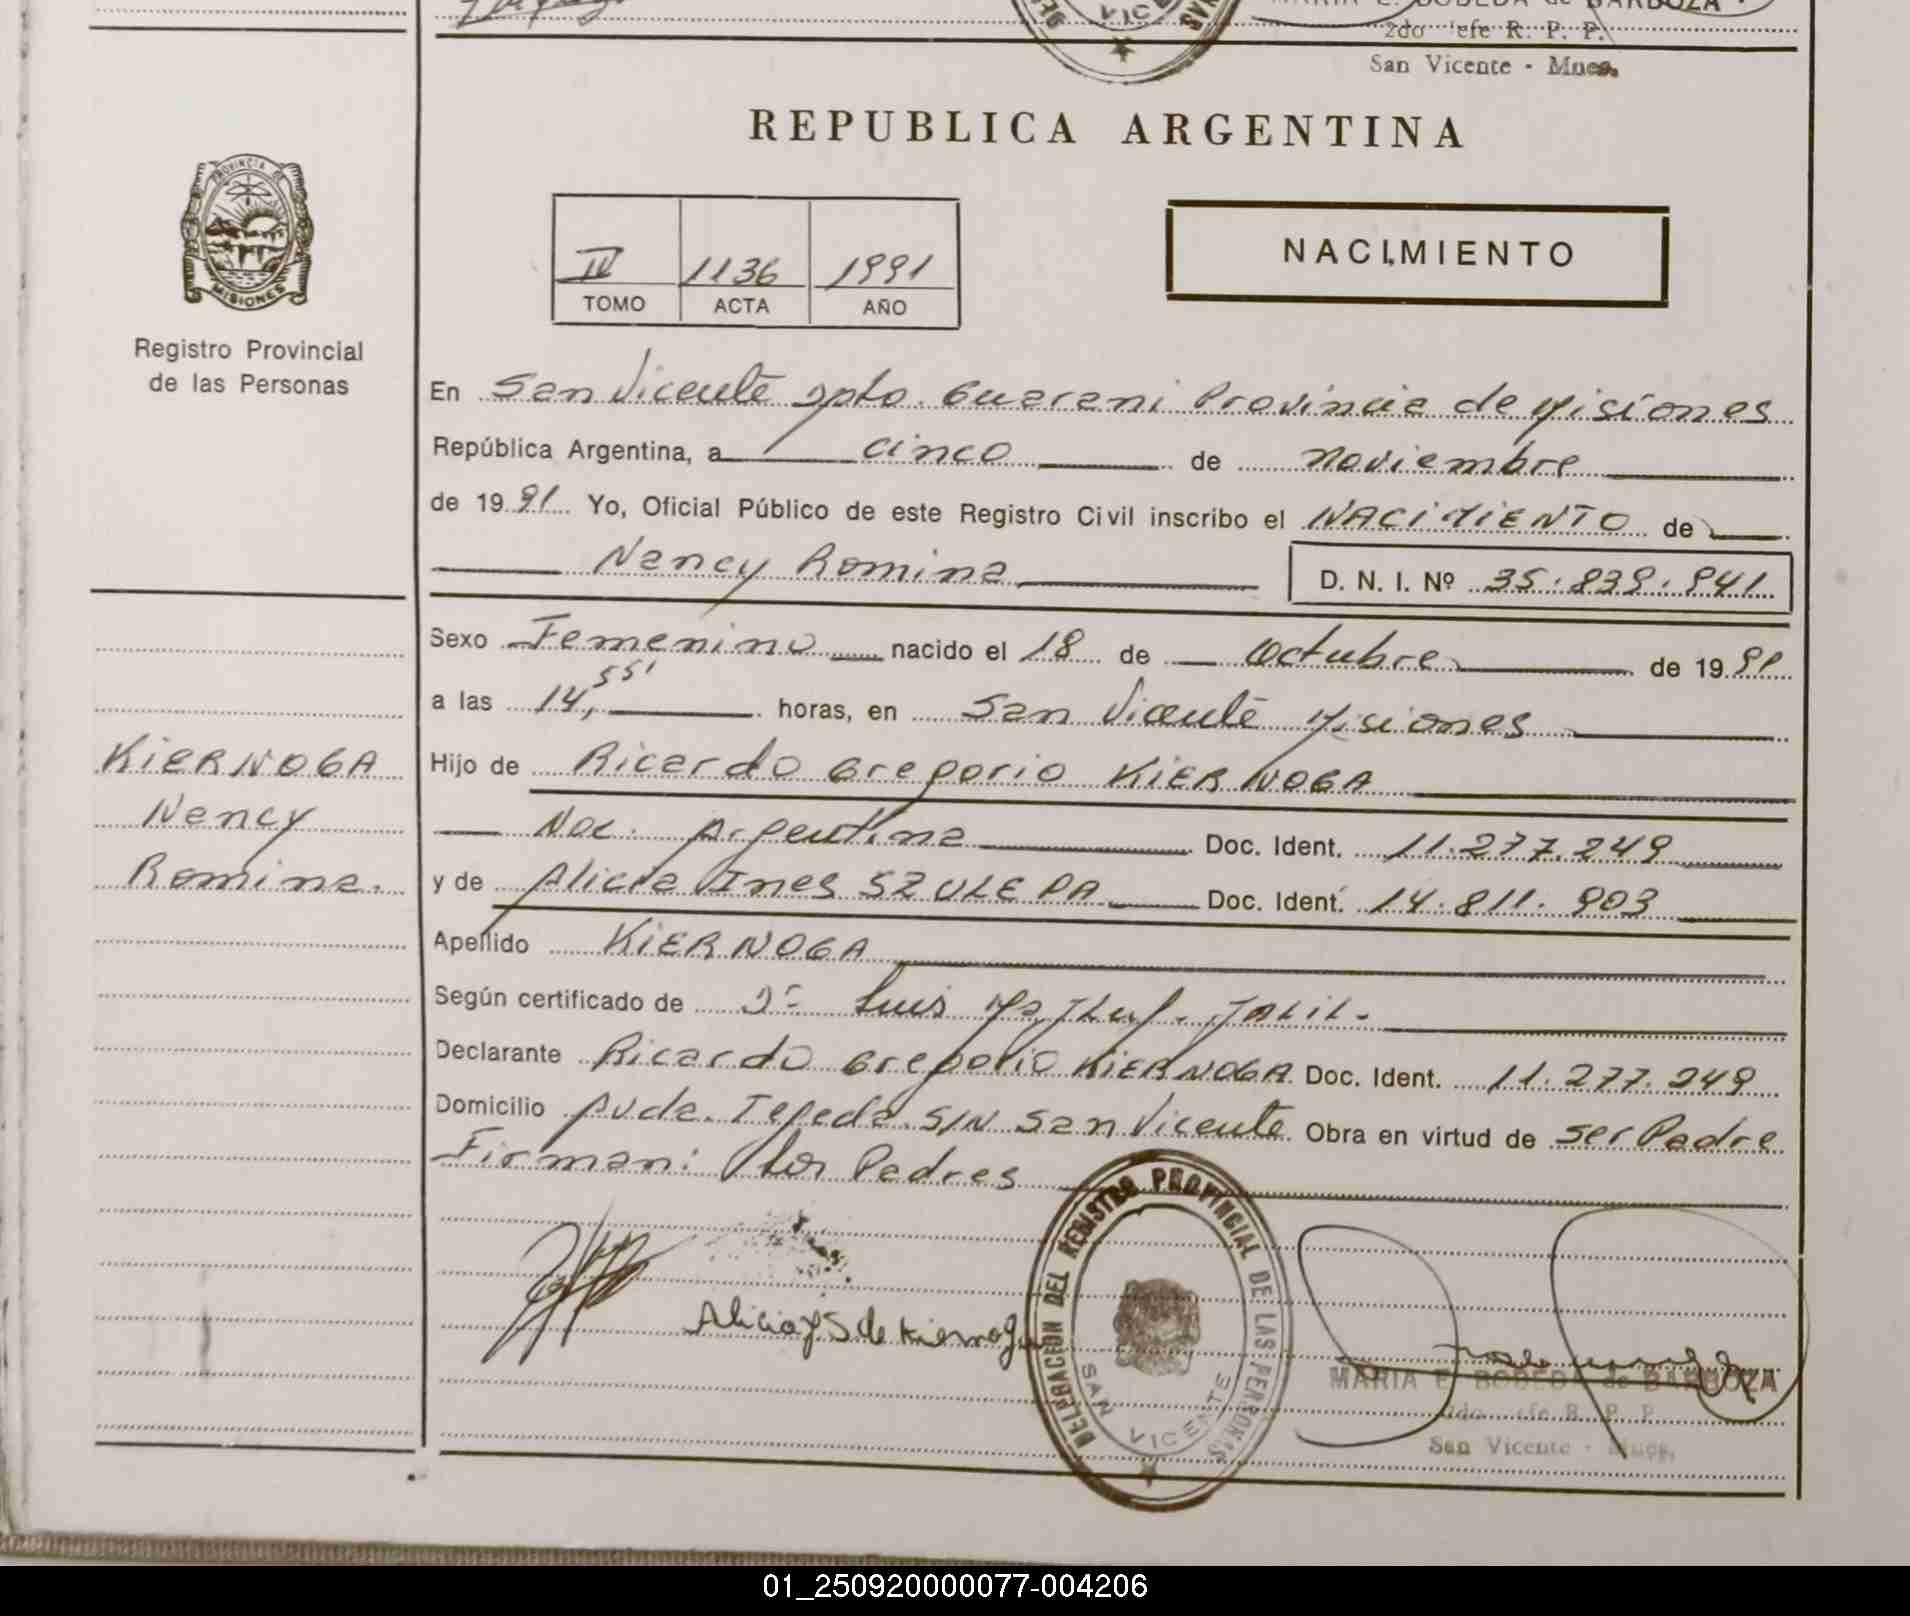 MARIA E. BOBEDA de BARBOZA
2do Jefe R. P. P.
San Vicente - Mnes.
VICE
REPUBLICA ARGENTINA
PROVINCIA DE
MISIONES
Registro Provincial
de las Personas
IV 1136 1991
TOMO ACTA AÑO
NACIMIENTO
En San Vicente Dpto. Guarani Provincia de Misiones
República Argentina, a cinco de noviembre
de 1991 Yo, Oficial Público de este Registro Civil inscribo el NACIMIENTO de
Nancy Romina D. N. I. Nº 35.839.941
Sexo Femenino nacido el 18 de Octubre de 1991
a las 14,55' horas, en San Vicente Misiones
Hijo de Ricardo Gregorio KIERNOGA
Nac. Argentina Doc. Ident. 11.277.249
y de Alicia Ines SZULEPA Doc. Ident. 14.811.903
Apellido KIERNOGA
KIERNOGA
Nancy
Romina.
Según certificado de Dr. Luis JALIL.
Declarante Ricardo Gregorio KIERNOGA Doc. Ident. 11.277.249
Domicilio Avda. Tejeda S/N San Vicente Obra en virtud de ser Padre
Firman: los Padres
Alicia S de Kiernoga
DELEGACION DEL REGISTRO PROVINCIAL DE LAS PERSONAS
SAN VICENTE
MARIA E. BOBEDA de BARBOZA
2do Jefe R. P. P.
San Vicente - Mnes.
01_250920000077-004206